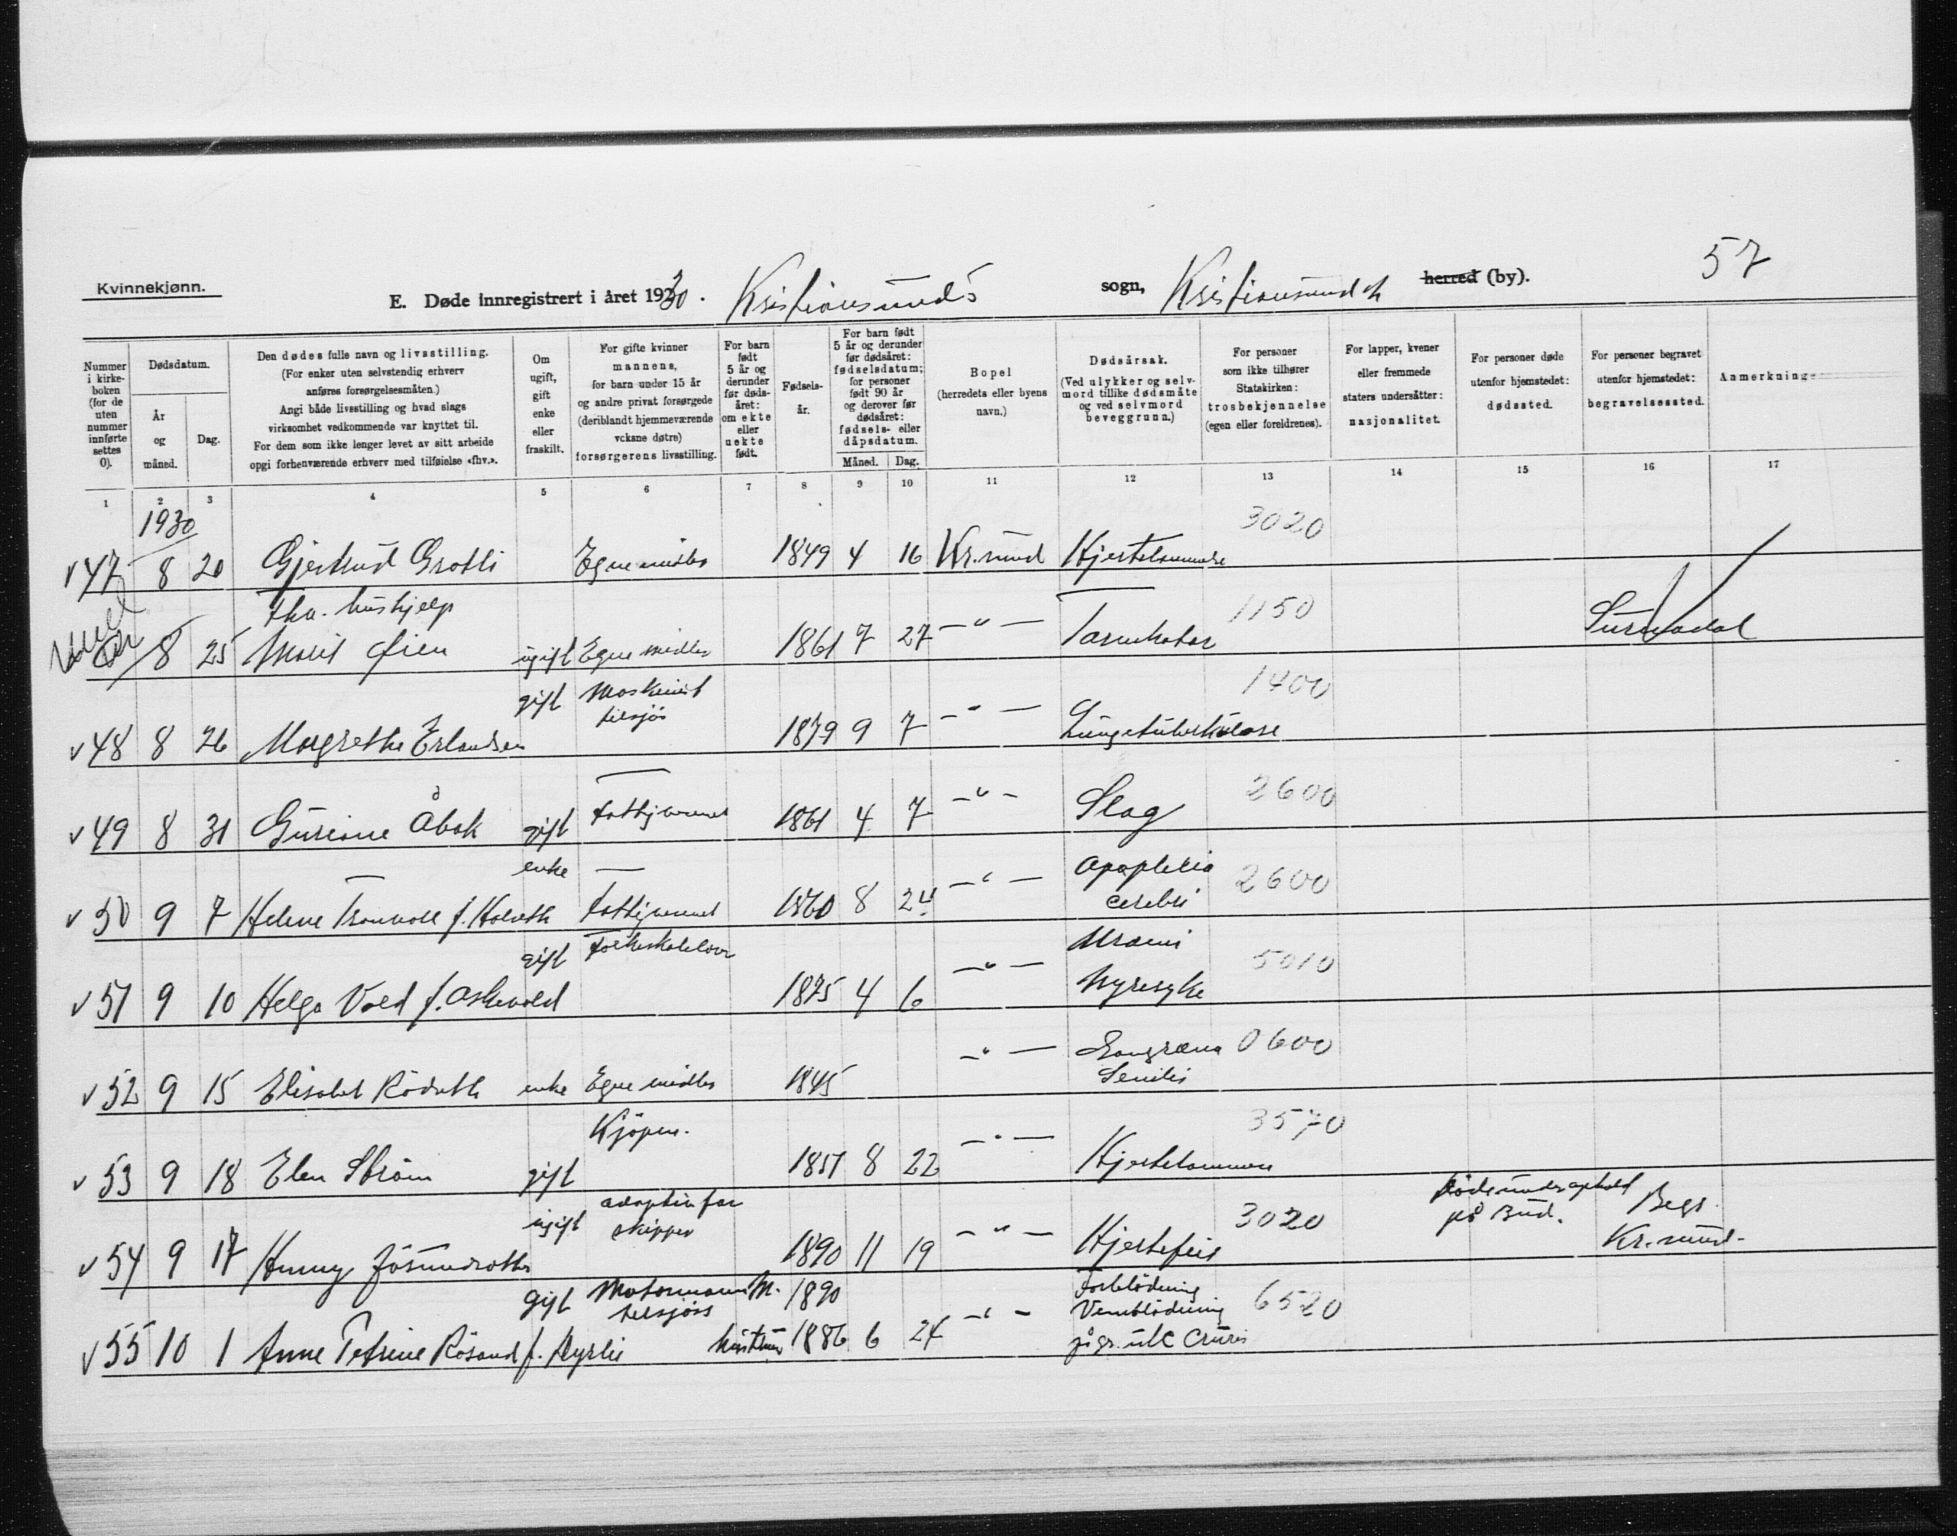 Kvinnekjønn.
E. Døde innregistrert i året 1930. Kristiansunds sogn, Kristiansund N herred (by). 57
Nummer i kirkeboken (for de uten nummer innførte settes 0).
Dødsdatum.
År og måned.
Dag.
Den dødes fulle navn og livsstilling.
(For enker uten selvstendig erhverv
anføres forsørgelsesmåten.)
Angi både livsstilling og hvad slags
virksomhet vedkommende var knyttet til.
For dem som ikke lenger levet av sitt arbeide
opgi forhenværende erhverv med tilføielse «fhv.».
Om ugift, gift enke eller fraskilt.
For gifte kvinner
mannens,
for barn under 15 år
og andre privat forsørgede
(deriblandt hjemmeværende
voksne døtre)
forsørgerens livsstilling.
For barn født 5 år og derunder før dødsåret: om ekte eller uekte født.
Fødselsår.
For barn født
5 år og derunder
før dødsåret:
fødselsdatum;
for personer
født 90 år
og derover før
dødsåret:
fødsels- eller
dåpsdatum.
Måned. Dag.
Bopel
(herredets eller byens
navn.)
Dødsårsak.
(Ved ulykker og selvmord tillike dødsmåte
og ved selvmord
beveggrunn.)
For personer
som ikke tilhører
Statskirken:
trosbekjennelse
(egen eller foreldrenes).
For lapper, kvener
eller fremmede
staters undersåtter:
nasjonalitet.
For personer døde
utenfor hjemstedet:
dødssted.
For personer begravet
utenfor hjemstedet:
begravelsessted.
Anmerkninge
1 2 3 4 5 6 7 8 9 10 11 12 13 14 15 16 17
1930
3020
v 47 8 20 Gjertrud Grotli Egne midler 1849 4 16 Kr.sund Hjertelammelse
fhv. hushjelp
1150
8 25 Marit Øien ugift Egne midler 1861 7 27 —"— Tarmkatar Surnadal
gift Maskinist
tilsjøs
1400
v 48 8 26 Margrethe Erlandsen 1879 9 7 —"— Lungetuberkulose
2600
v 49 8 31 Guriane Åbak gift Fattigvesenet 1861 4 7 —"— Slag
enke
Apoplexia
cerebri
2600
v 50 9 7 Helene Tronvoll f. Holseth Fattigvesenet 1860 8 24 —"—
gift Folkeskolelærer
Uræmi
5010
v 51 9 10 Helga Vold f. Askevold 1875 4 6 —"— Nyresyke
Gangræna
Senilis
0600
v 52 9 15 Elisabet Rødseth enke Egne midler 1845 —"—
Kjøpm.
3570
v 53 9 18 Elen Strøm gift 1857 8 22 —"— Hjertelammelse
ugift adoptivfar
skipper
3020
på Bud.
Begr.
Kr.sund.
v 54 9 17 Hunny 1890 11 19 —"— Hjertefeil
gift Motormann
tilsjøss
M. 1890
Forblødning
6520
v 55 10 1 Anne Petrine Røsand f. Myrlie hustru 1886 6 24 —"— ulc cruris